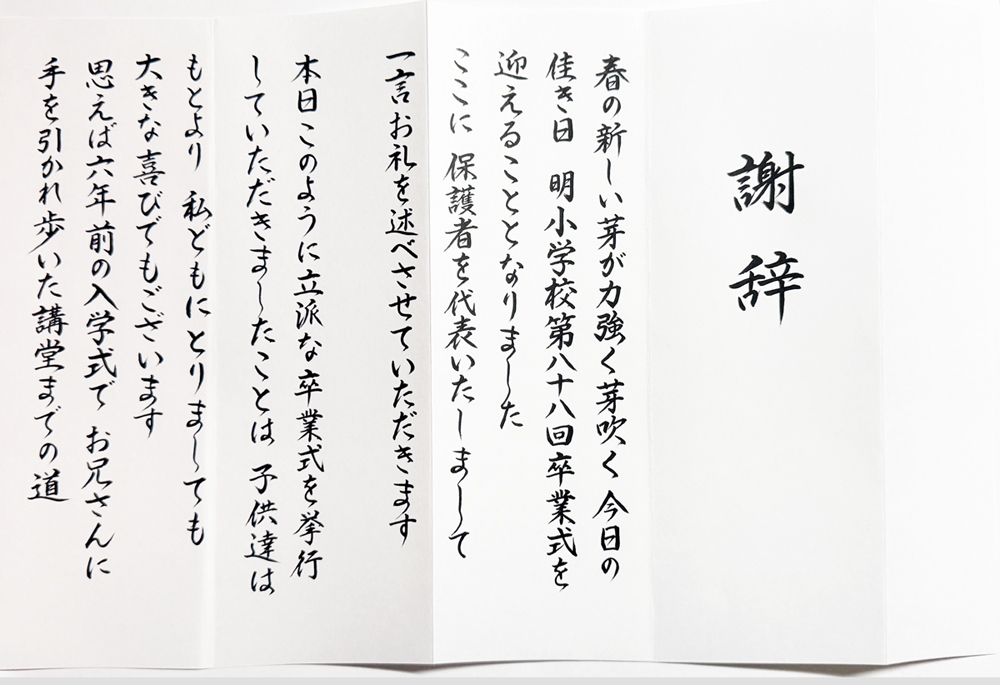 謝辞
春の新しい芽が力強く芽吹く 今日の
佳き日 明小学校第八十八回卒業式を
迎えることとなりました
ここに 保護者を代表いたしまして
一言お礼を述べさせていただきます
本日このように立派な卒業式を挙行
していただきましたことは 子供達は
もとより 私どもにとりましても
大きな喜びでもございます
思えば六年前の入学式で お兄さんに
手を引かれ歩いた講堂までの道